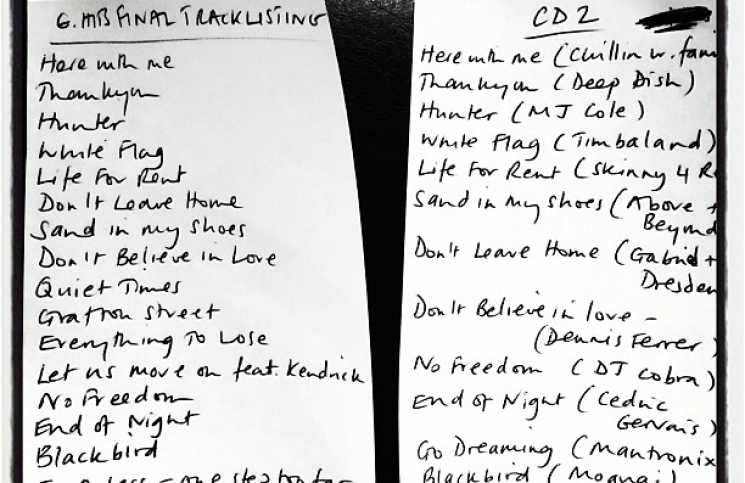 G. HITS FINAL TRACKLISTING
Here with me
Thankyou
Hunter
White Flag
Life For Rent
Don't Leave Home
Sand in my shoes
Don't Believe in Love
Quiet Times
Grafton Street
Everything To Lose
Let us move on feat. Kendrick
No Freedom
End of Night
Blackbird
one step too far
CD 2
Here with me (Chillin w. fam
Thankyou (Deep Dish)
Hunter (MJ Cole)
White Flag (Timbaland)
Life For Rent (Skinny 4 R
Sand in my shoes (Above +
Beyond
Don't Leave Home (Gabriel +
Dresden
Don't Believe in love -
(Dennis Ferrer)
No Freedom (DJ Cobra)
End of Night (Cedric
Gervais)
Go Dreaming (Mantronix
Blackbird